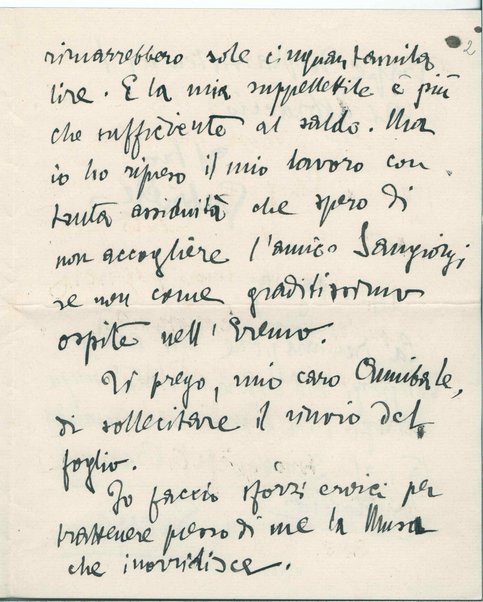 2
rimarrebbero sole cinquantamila
lire. E la mia suppellettile è più
che sufficiente al saldo. Ma
io ho ripreso il mio lavoro con
tanta assiduità che spero di
non accogliere l'amico Sangiorgi
se non come graditissimo
ospite nell'Eremo.
Ti prego, mio caro Annibale,
di sollecitare il rinvio del
foglio.
Io faccio sforzi eroici per
trattenere presso di me la Musa
che inorridisce.